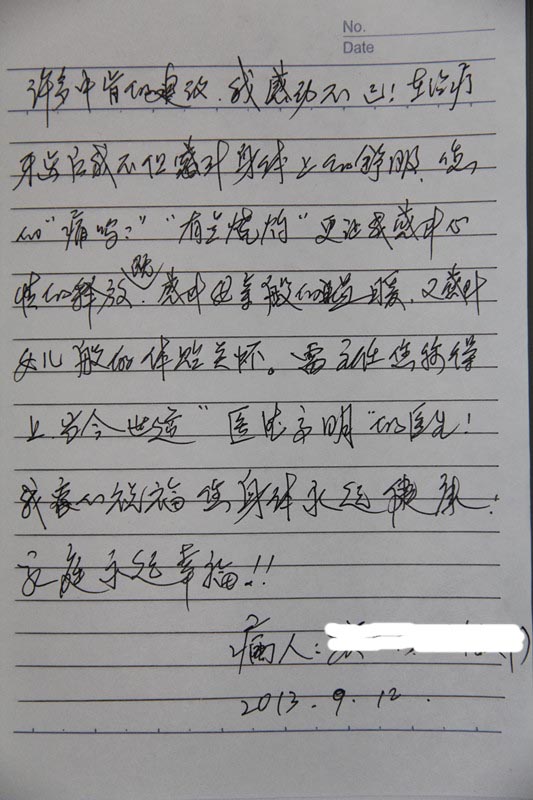 No.
Date
许多中肯的建议,我感动不已!在治疗
床边后我不但感到身体上的舒服,您
的"痛吗?""有点烧灼"更让我感中心
情的释放,既感中母亲般的温暖,又感中
女儿般的体贴关怀。雷主任您称得
上当今世道"医德高明"的医生!
我衷心祝福您身体永远健康!
家庭永远幸福!!
病人:
2013.9.12.